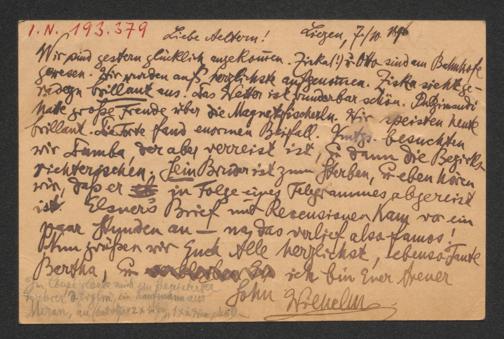 I.N. 193.379
Liebe Aeltern! Liezen, 7/10.
Wir sind gestern glücklich angekommen. Ziska(!) u Otto sind am Bahnhofe
gewesen. Wir wurden aufs herzlichste aufgenommen. Ziska sieht ge-
radezu brillant aus! Das Wetter ist wunderbar schön.
hatte große Freude über die Wir speisten heute
brillant. Die Torte fand enormen Beifall. besuchten
wir der aber verreist ist, u dann die Bezirks-
richterischen. Sein Bruder ist zum Sterben, u eben hören
wir, daß er in Folge eines Telegrammes abgereist
ist. Elsner's Brief mit Recensionen kam vor ein
paar Stunden an — na, das verlief also famos!
Nun grüßen wir Euch Alle herzlichst, ebenso Tante
Bertha, ich bin Euer treuer
Sohn Wilhelm
Meran, an